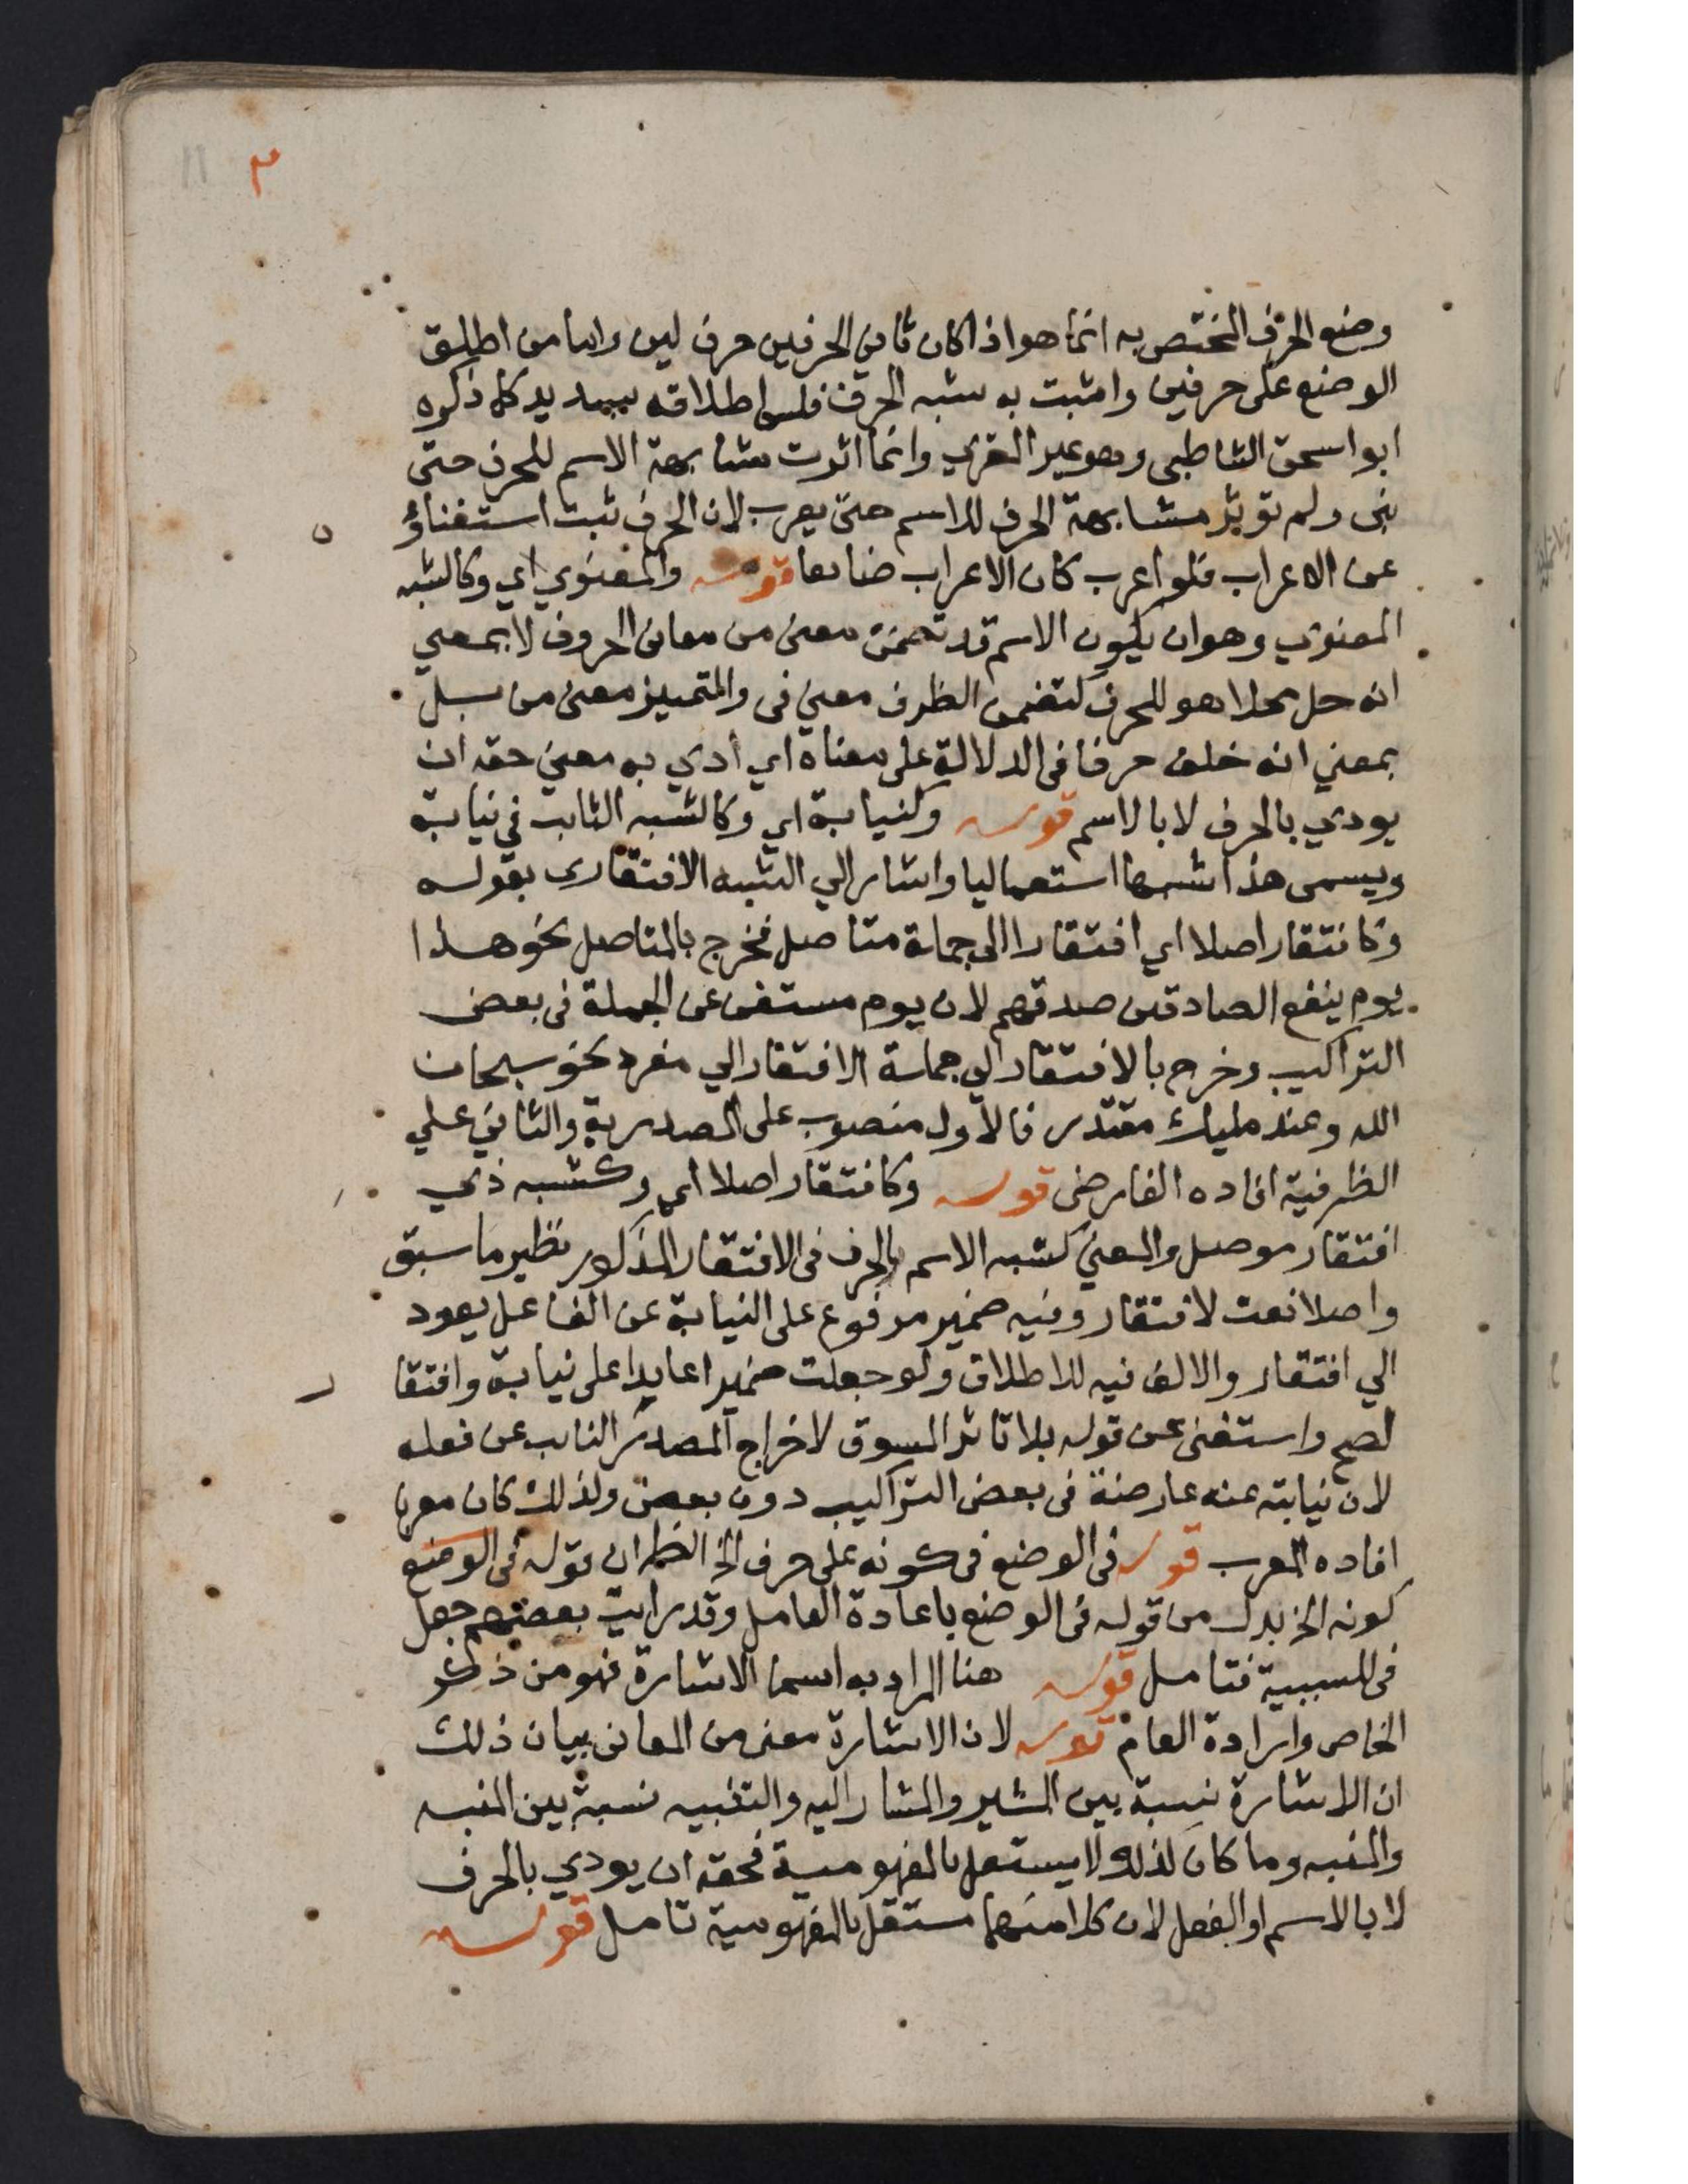 ٣ 11
وضع الحرف المختص به انما هو اذا كان ثاني الحرفين حرف لين واما من اطلق
الوضع على حرفين واثبت به شبه الحرف فليس اطلاقه بسديد كما ذكره
ابو اسحق الشاطبي وهو غير العزي وانما اثرت مشابهة الاسم للحرف حتى
بنى ولم توثر مشابهة الحرف للاسم حتى يعرب لان الحرف ثبت استغناؤه
عن الاعراب فلو اعرب كان الاعراب ضائعا قوله والمعنوي اي وكالشبه
المعنوي وهو ان يكون الاسم قد تضمن معنى من معاني الحروف لا بمعني
انه حل محلا هو للحرف كتضمن الظرف معني في والتمييز معنى من بل
بمعني انه خلف حرفا في الدلالة على معناه اي ادي به معني حقه ان
يودي بالحرف لا بالاسم قوله وكنيابة اي وكالشبه الثابت في نيابة
ويسمى هذا شبها استعماليا واشار الي الشبه الافتقاري بقوله
وكافتقار اصلا اي افتقارا الى جملة متاصل فخرج بالمتاصل نحو هذا
يوم ينفع الصادقين صدقهم لان يوم مستغن عن الجملة في بعض
التراكيب وخرج بالافتقار الي جملة الافتقار الي مفرد نحو سبحان
الله وعند مليك مقتدر فالاول منصوب على المصدرية والثاني علي
الظرفية افاده الفارضي قوله وكافتقار اصلا اي وكشبه ذي
افتقار موصل والمعني كشبه الاسم بالحرف في الافتقار المذكور نظير ما سبق
واصلا نعت لافتقار وفيه ضمير مرفوع على النيابة عن الفاعل يعود
الي افتقار والالف فيه للاطلاق ولو جعلت ضميرا عايدا على نيابة وافتقا
لصح واستغنى عن قوله بلا تاثر المسوق لاخراج المصدر النايب عن فعله
لان نيابته عنه عارضة في بعض التراكيب دون بعض ولذلك كان معربا
افاده المعرب قوله في الوضع في كونه على حرف الخ الظاهر ان قوله في الوضع
كونه الخ بدل من قوله في الوضع باعادة العامل وقد رايت بعضهم جعل
في للسببية فتامل قوله هنا المراد به اسما الاشارة فهو من ذكر
الخاص وارادة العام قوله لان الاشارة معنى من المعاني بيان ذلك
ان الاشارة نسبة بين المشير والمشار اليه والتنبيه نسبة بين المنبه
والمنبه وما كان لذلك لا يستقل بالمفهومية فحقه ان يودي بالحرف
لا بالاسم او الفعل لان كلا منهما مستقل بالمفهومية تامل قوله